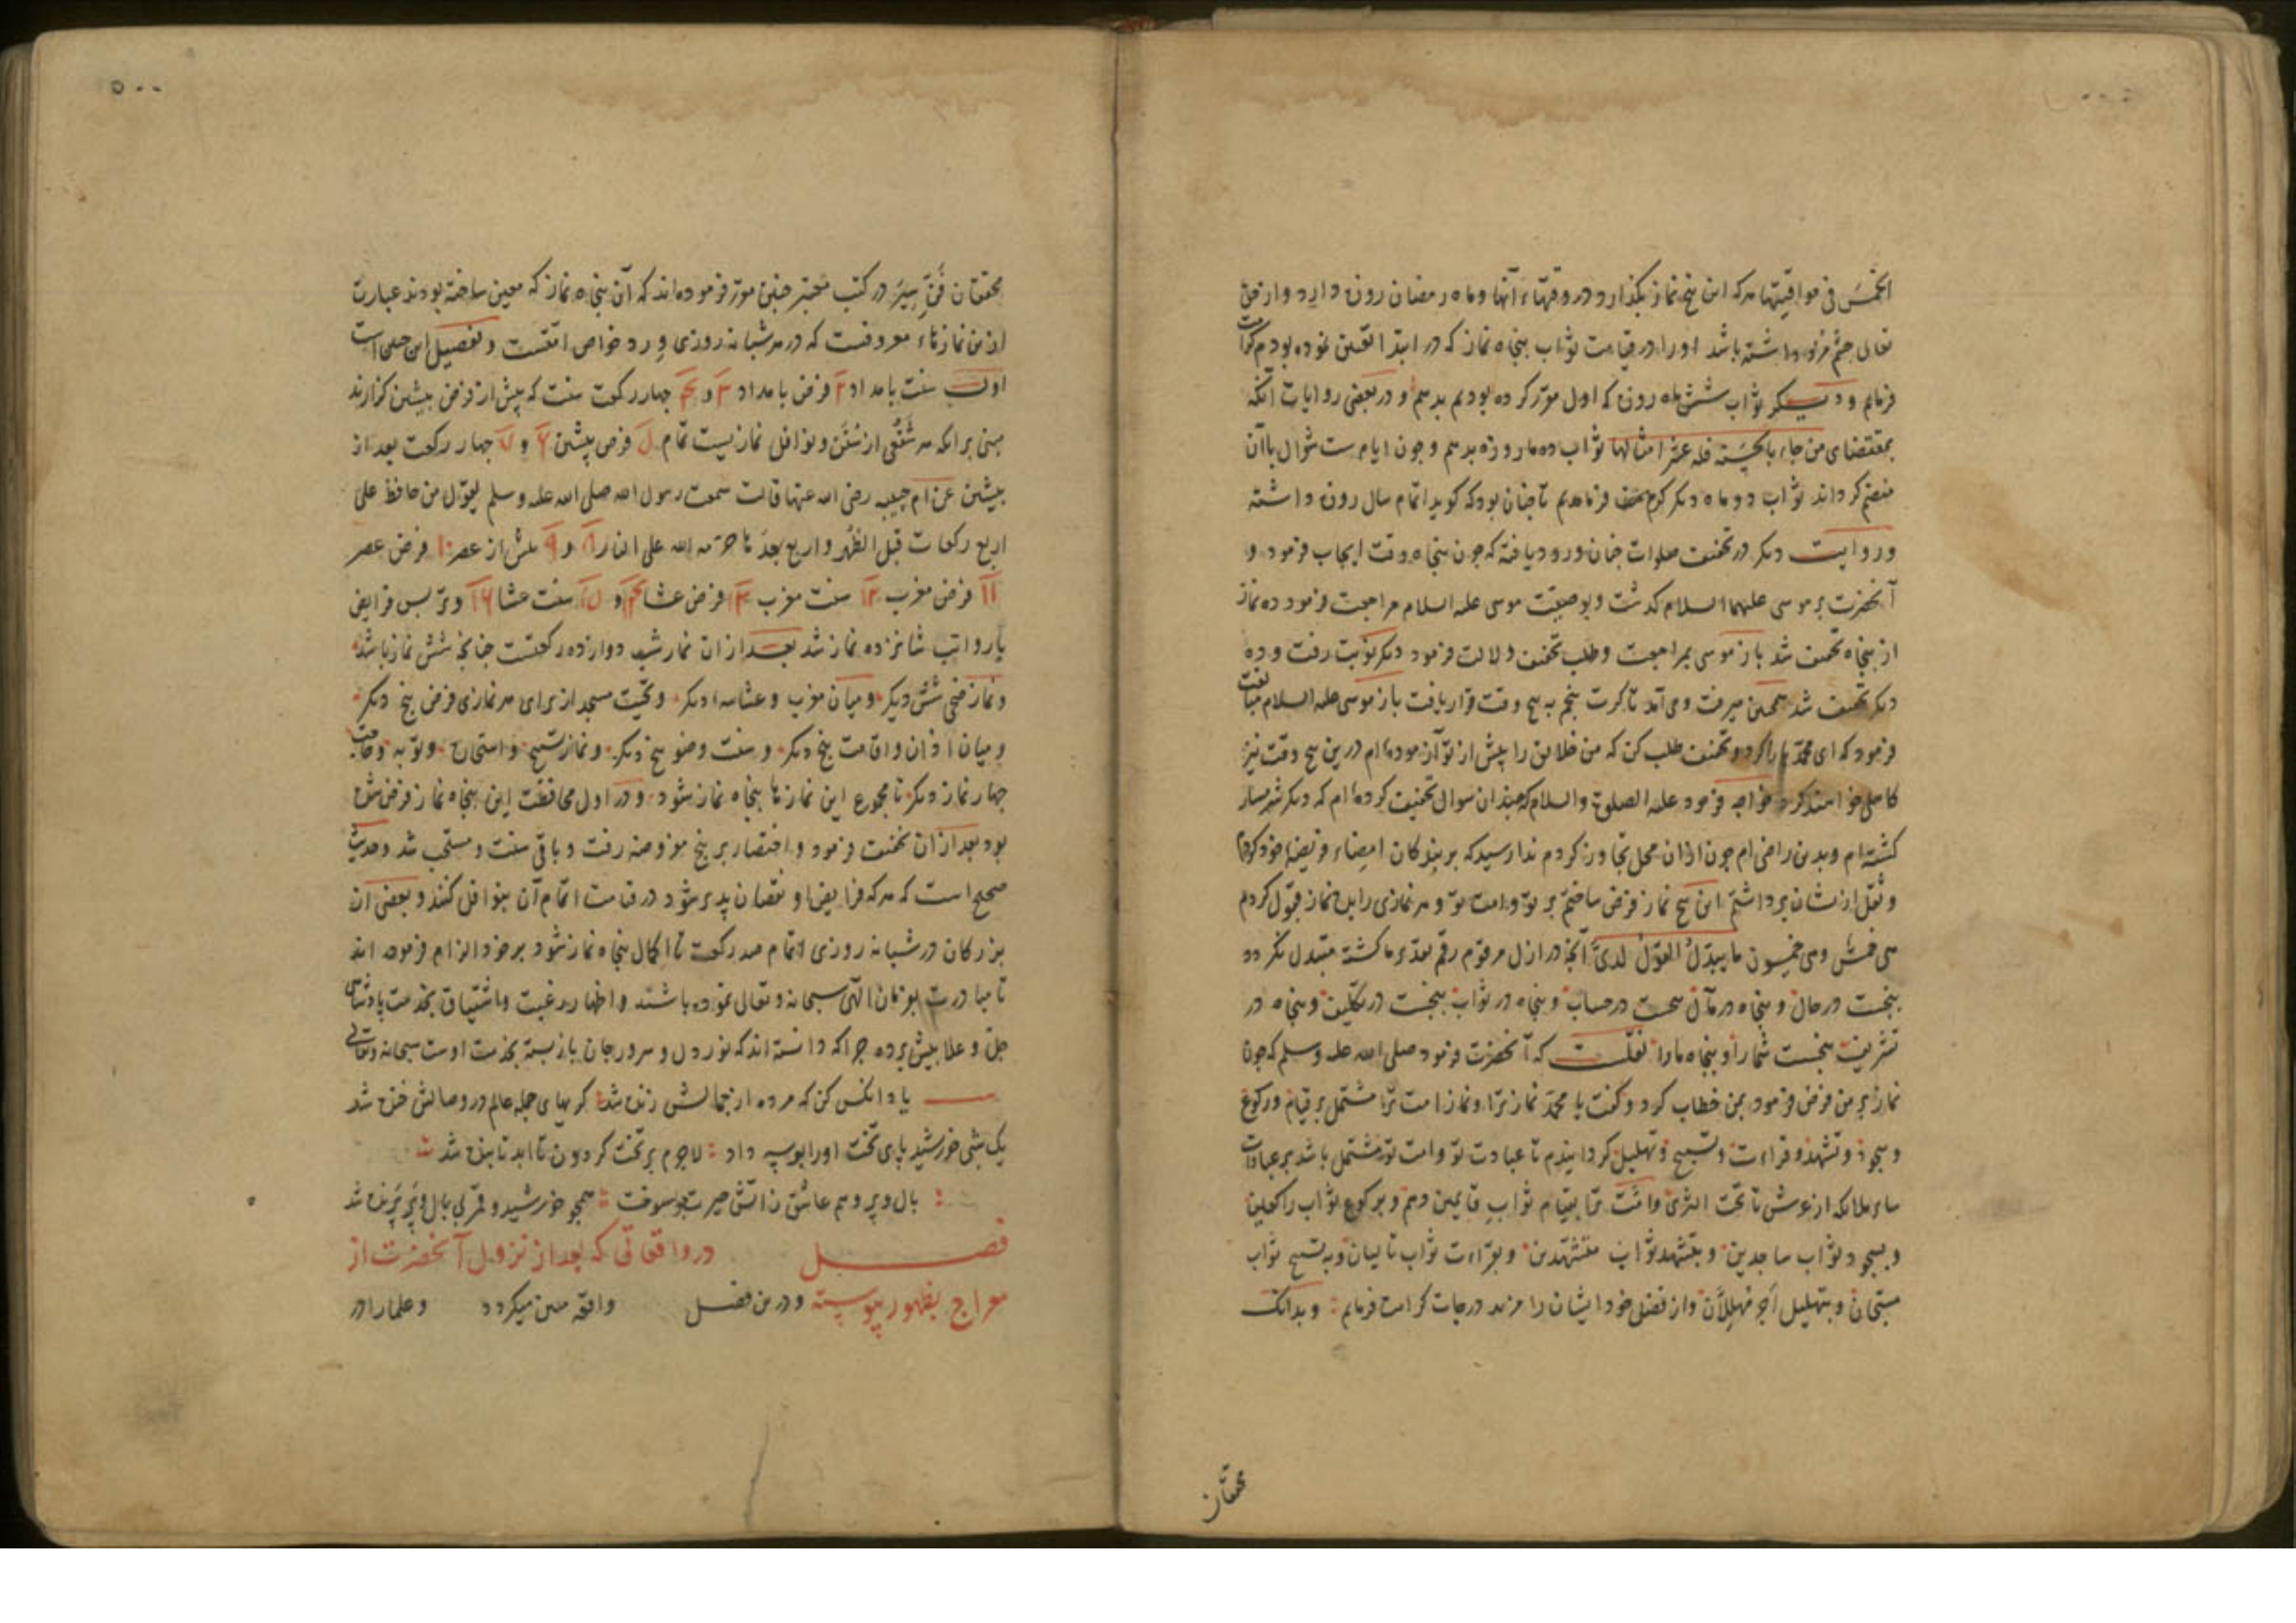 الخمس فی مواقیتها هرکه این پنج نماز بکذارد در وقتهاء آنها و ماه رمضان روزه دارد و از حق
تعالی چشم مزد داشته باشد او را در قیامت ثواب پنجاه نماز که در ابتدا تعیین نموده بودم کرامت
فرمایم و دیکر ثواب شش ماه روزه که اول مقرر کرده بودیم بدهم و در بعضی روایات آنکه
بمقتضای من جاء بالحسنة فله عشر امثالها ثواب ده ماه روزه بدهم و چون ایام ست شوال باآن
منضم کرداند ثواب دو ماه دیکر کرم فرماییم تا چنان بود که کویند تمام سال روزه داشته
و روایت دیکر در تخفیف صلوات چنان ورود یافته که چون پنجاه وقت ایجاب فرمود و
آنحضرت بر موسی علیهما السلام کذشت و بوصیت موسی علیه السلام مراجعت فرمود ده نماز
از پنجاه تخفیف شد باز موسی بمراجعت و طلب تخفیف دلالت فرمود دیکر نوبت رفت و ده
دیکر تخفیف شد همچنین میرفت و می آمد تا کرت پنجم به پنج وقت قرار یافت باز موسی علیه السلام مبالغت
فرمود که ای محمد باز کرد و تخفیف طلب کن که من خلایق را پیش از تو آزموده ام درین پنج وقت نیز
کاهلی خواهند کرد خواجه فرمود علیه الصلوة والسلام که چندان سوال تخفیف کرده ام که دیکر شرمسار
کشته ام و بدین راضی ام چون ازان محل تجاوز کردم ندا رسید که بر بندکان امضاء فریضهٔ خود کردم
و ثقل ازیشان برداشتم این پنج نماز فرض ساختم بر تو و امت تو و هر نمازی را بده نماز قبول کردم
هی خمس وهی خمسون ما یبدل القول لدی آنچه در ازل مرقوم رقم تقدیر ما کشته متبدل نکردد
پنجست در حال و پنجاه در مآل پنجست در حساب و پنجاه در ثواب پنجست در تکلیف و پنجاه در
تشریف پنجست شما را و پنجاه ما را نقلست که آنحضرت فرمود صلی الله علیه وسلم که چون
نماز بر من فرض فرمود بمن خطاب کرد و کفت یا محمد نماز ترا و نماز امت ترا مشتمل بر قیام و رکوع
و سجود و تشهد و قراءت و تسبیح و تهلیل کردانیدم تا عبادت تو و امت تو مشتمل باشد بر عبادات
سایر ملائکه از عرش تا تحت الثری و امت ترا بقیام ثواب قایمین دهم و برکوع ثواب راکعین
و بسجود ثواب ساجدین و بتشهد ثواب متشهدین و بقراءت ثواب تالیان و به تسبیح ثواب
مسبحان و بتهلیل اجر مهللان و از فضل خود ایشان را مزید درجات کرامت فرمایم و بدانک
محققان
۵۰۰
محققان فن سیر در کتب معتبر چنین مقرر فرموده اند که آن پنجاه نماز که معین ساخته بودند عبارت
ازین نمازهاء معروفست که در هر شبانه روزی ورد خواص امتست و تفصیل این جمل است
اول سنت بامداد ۲ فرض بامداد ۳ و ۴ چهار رکعت سنت که پیش از فرض پیشین کزارند
مبنی برانکه هر شفعی از سنن و نوافل نمازیست تمام ۵ فرض پیشین ۶ و ۷ چهار رکعت بعد از
پیشین عن ام حبیبه رضی الله عنها قالت سمعت رسول الله صلی الله علیه وسلم یقول من حافظ علی
اربع رکعات قبل الظهر و اربع بعدها حرمه الله علی النار ۸ و ۹ پیش از عصر ۱۰ فرض عصر
۱۱ فرض مغرب ۱۲ سنت مغرب ۱۳ فرض عشا ۱۴ و ۱۵ سنت عشا ۱۶ وتر پس فرایض
با رواتب شانزده نماز شد بعد ازان نماز شب دوازده رکعتست چنانچه شش نماز باشد
و نماز ضحی شش دیکر و میان مغرب و عشا سه دیکر و تحیت مسجد از برای هر نمازی فرض پنج دیکر
و میان اذان و اقامت پنج دیکر و سنت وضو پنج دیکر و نماز تسبیح و استخاره و توبه و حاجت
چهار نماز دیکر تا مجموع این نمازها پنجاه نماز شود و در اول محافظت این پنجاه نماز فرض شده
بود بعد ازان تخفیف فرمود و اختصار بر پنج مفروضه رفت و باقی سنت و مستحب شد و حدیث
صحیح است که هرکه فرایض او نقصان پذیر شود در قیامت اتمام آن بنوافل کنند و بعضی از
بزرکان در شبانه روزی اتمام صد رکعت تا اکمال پنجاه نماز شود بر خود الزام فرموده اند
تا مبادرت بفرمان الهی سبحانه و تعالی نموده باشند و اظهار رغبت و اشتیاق بخدمت پادشاهی
جل و علا پیش برده چراکه دانسته اند که نور دل و سرور جان باز بسته بخدمت اوست سبحانه وتعالی
یاد انکس کن که مرده از جمالش زنده شد کریهای جمله عالم در وصالش خنده شد
یک شبی خورشید پای تخت او را بوسه داد لاجرم بر تخت کردون تا ابد تابنده شد
بال و پر وهم عاشق ز آتش حیرت بسوخت همچو خورشید و قمر بی بال و پر پرنده شد
فصل در واقعاتی که بعد از نزول آنحضرت از
معراج بظهور پیوسته و درین فصل واقعه مبین میکردد و علما را در